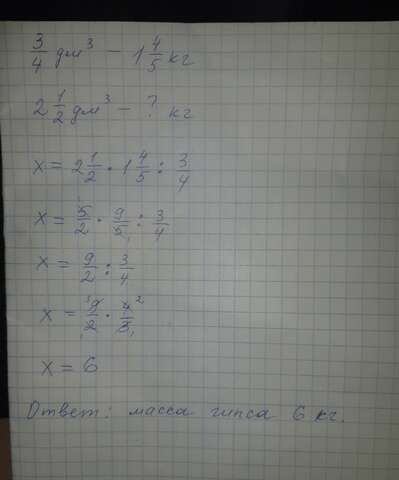 3/4 дм³ - 1 4/5 кг
2 1/2 дм³ - ? кг
x = 2 1/2 · 1 4/5 : 3/4
x = 5/2 · 9/5 : 3/4
x = 9/2 : 3/4
x = 9/2 · 4/3
x = 6
Ответ: масса гипса 6 кг.